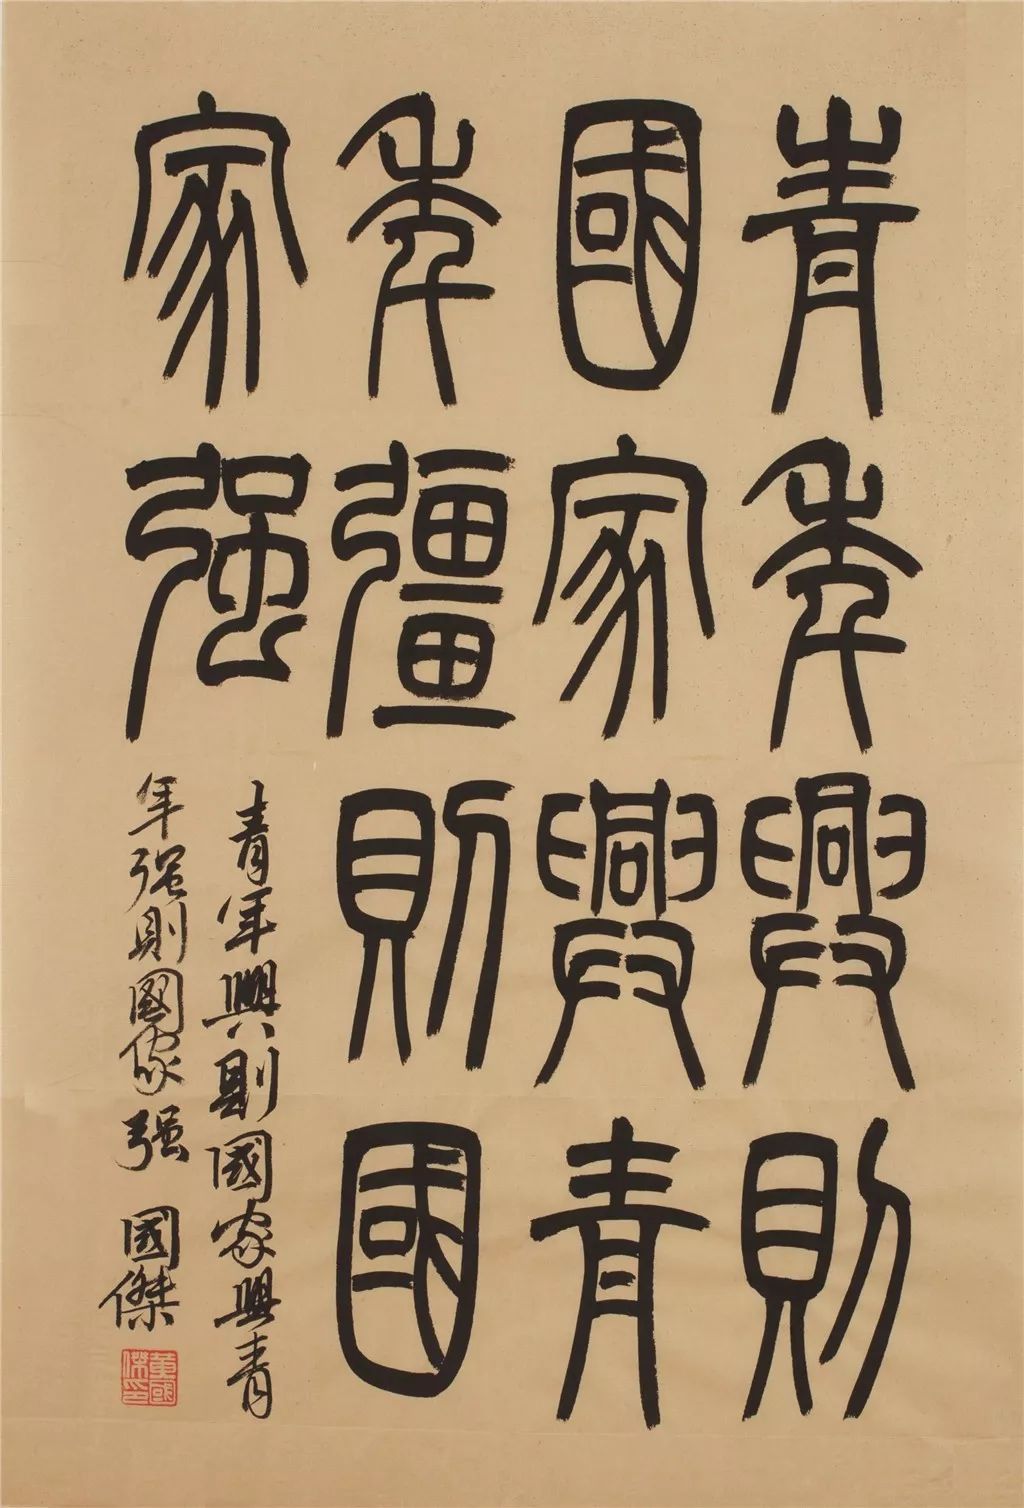 青年興則
國家興青
年彊則國
家强
青年興則國家興青
年强則國家强 國傑